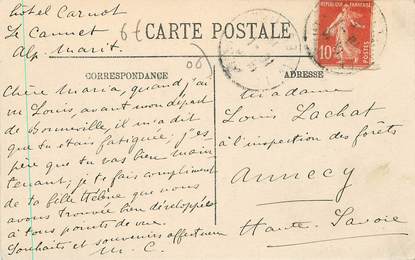 hôtel Carnot
Le Cannet
Alp. Marit.
6€
CARTE POSTALE
RÉPUBLIQUE FRANÇAISE
10
POSTES
06
CORRESPONDANCE
ADRESSE
Chère Maria, quand j'ai
vu Louis, avant mon départ
de Bonneville, il m'a dit
que tu étais fatiguée; j'es
père que tu vas bien main
tenant; je te fais compliment
de ta belle Hélène que nous
avons trouvée bien développée
à tous points de vue.
Souhaits et souvenirs affectueux
M. C.
Madame
Louis Lachat
à l'inspection des forêts
Annecy
Haute-Savoie